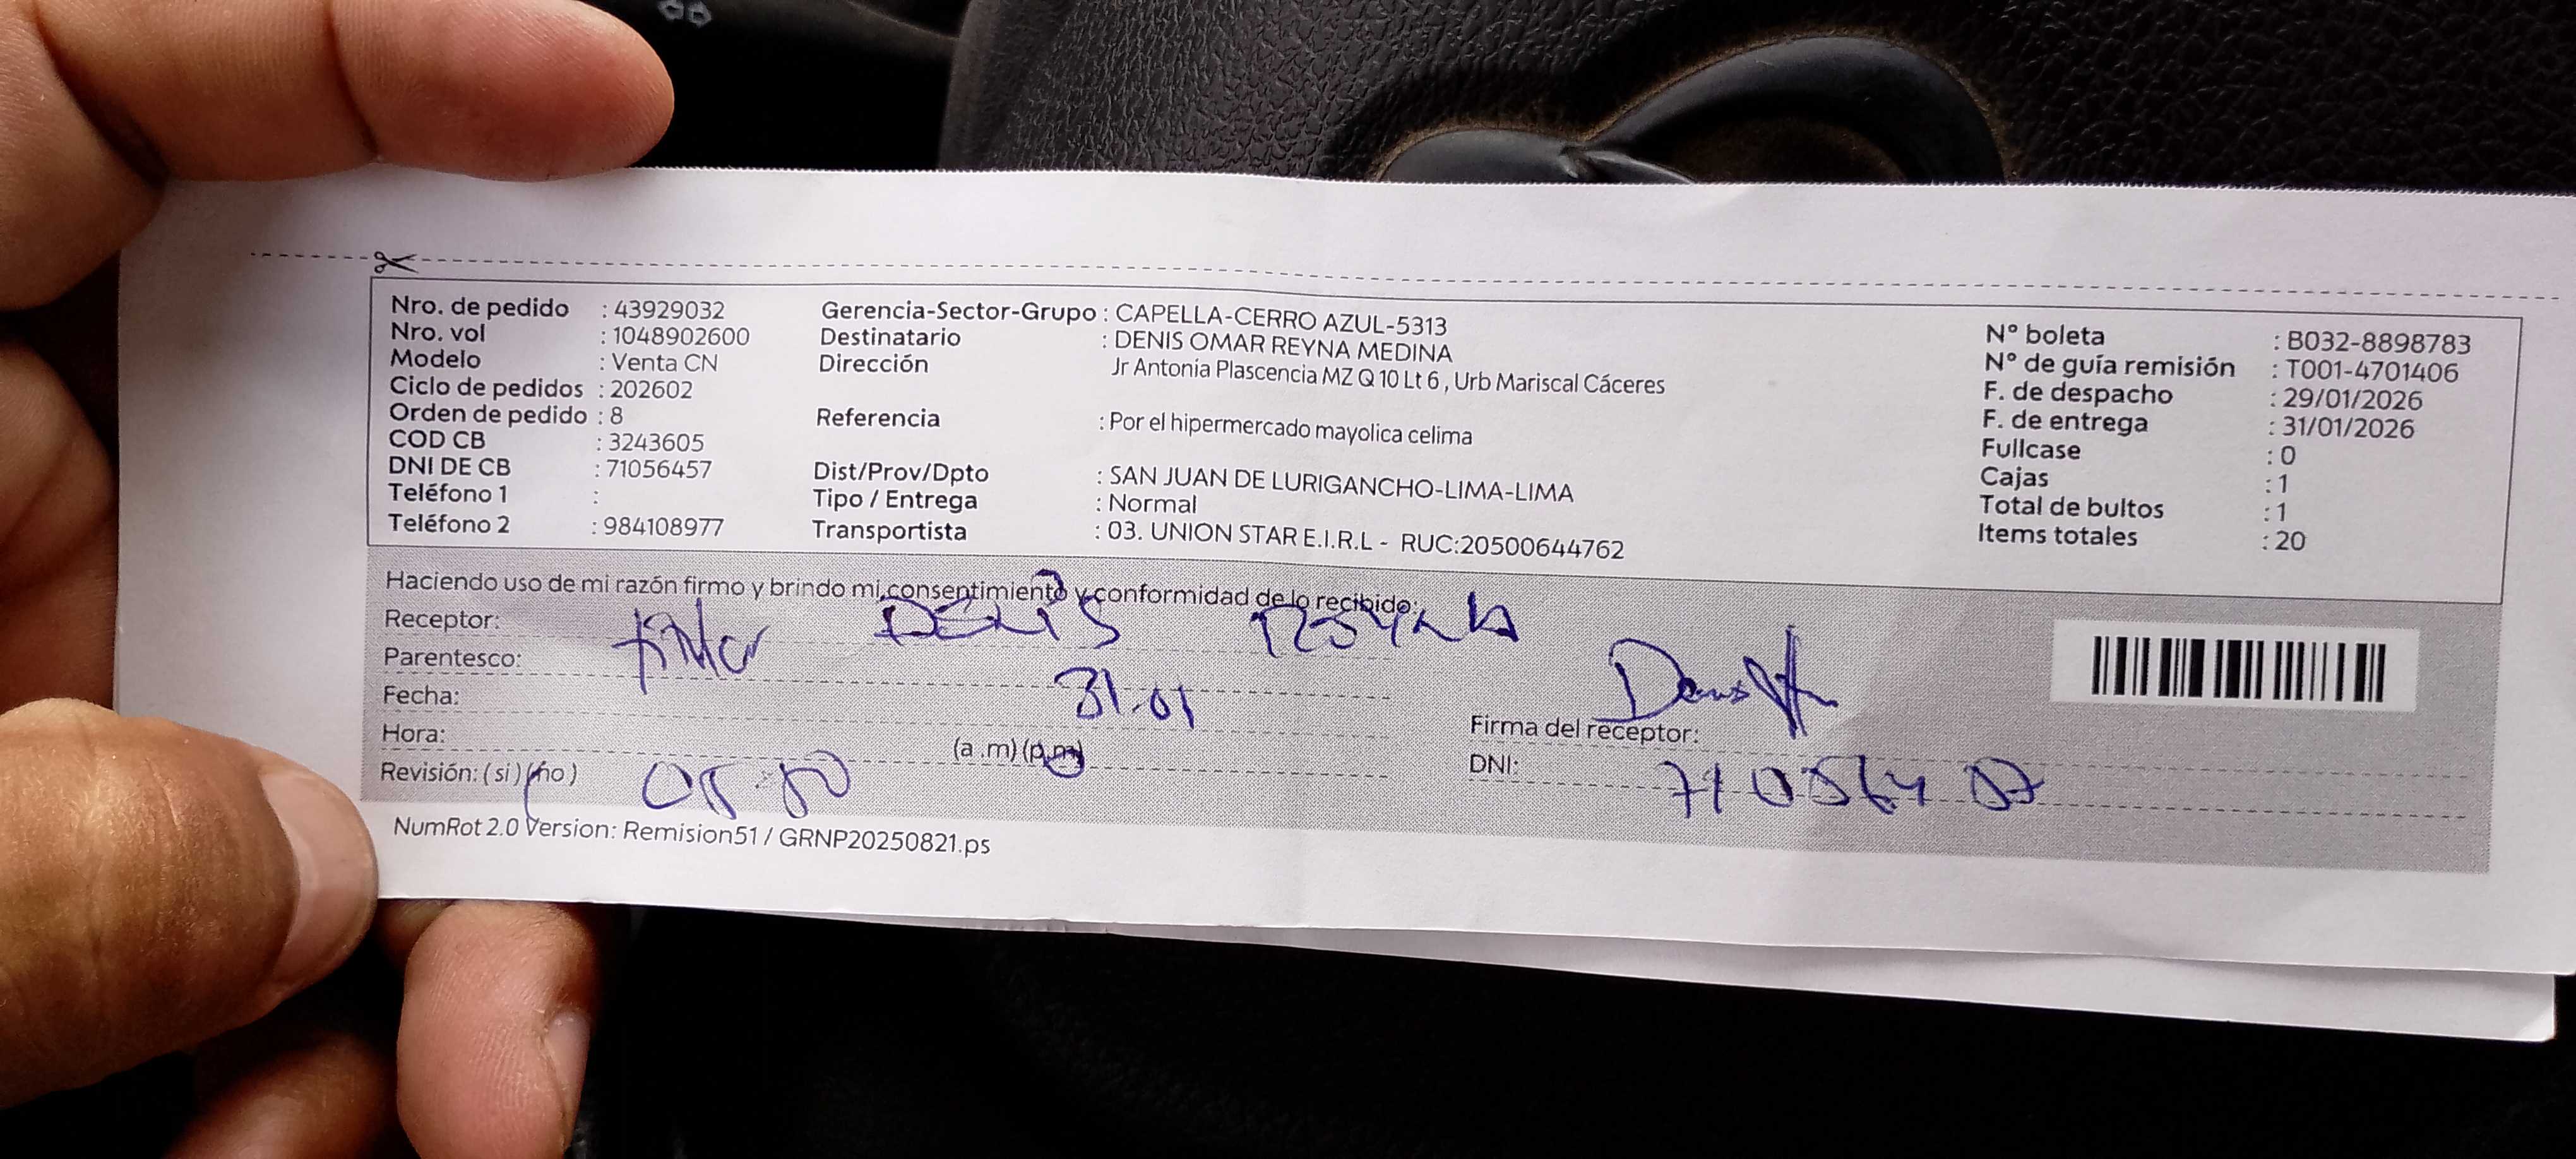 Nro. de pedido : 43929032
Nro. vol : 1048902600
Modelo : Venta CN
Ciclo de pedidos : 202602
Orden de pedido : 8
COD CB : 3243605
DNI DE CB : 71056457
Teléfono 1 :
Teléfono 2 : 984108977
Gerencia-Sector-Grupo : CAPELLA-CERRO AZUL-5313
Destinatario : DENIS OMAR REYNA MEDINA
Dirección Jr Antonia Plascencia MZ Q 10 Lt 6 , Urb Mariscal Cáceres
Referencia : Por el hipermercado mayolica celima
Dist/Prov/Dpto : SAN JUAN DE LURIGANCHO-LIMA-LIMA
Tipo / Entrega : Normal
Transportista : 03. UNION STAR E.I.R.L - RUC:20500644762
N° boleta : B032-8898783
N° de guía remisión : T001-4701406
F. de despacho : 29/01/2026
F. de entrega : 31/01/2026
Fullcase : 0
Cajas : 1
Total de bultos : 1
Items totales : 20
Haciendo uso de mi razón firmo y brindo mi consentimiento y conformidad de lo recibido:
Receptor: DENIS
Parentesco:
Fecha: 31.01
Hora: (a .m) (p.m)
Revisión: ( si ) ( no )
Firma del receptor:
DNI:
NumRot 2.0 Version: Remision51 / GRNP20250821.ps